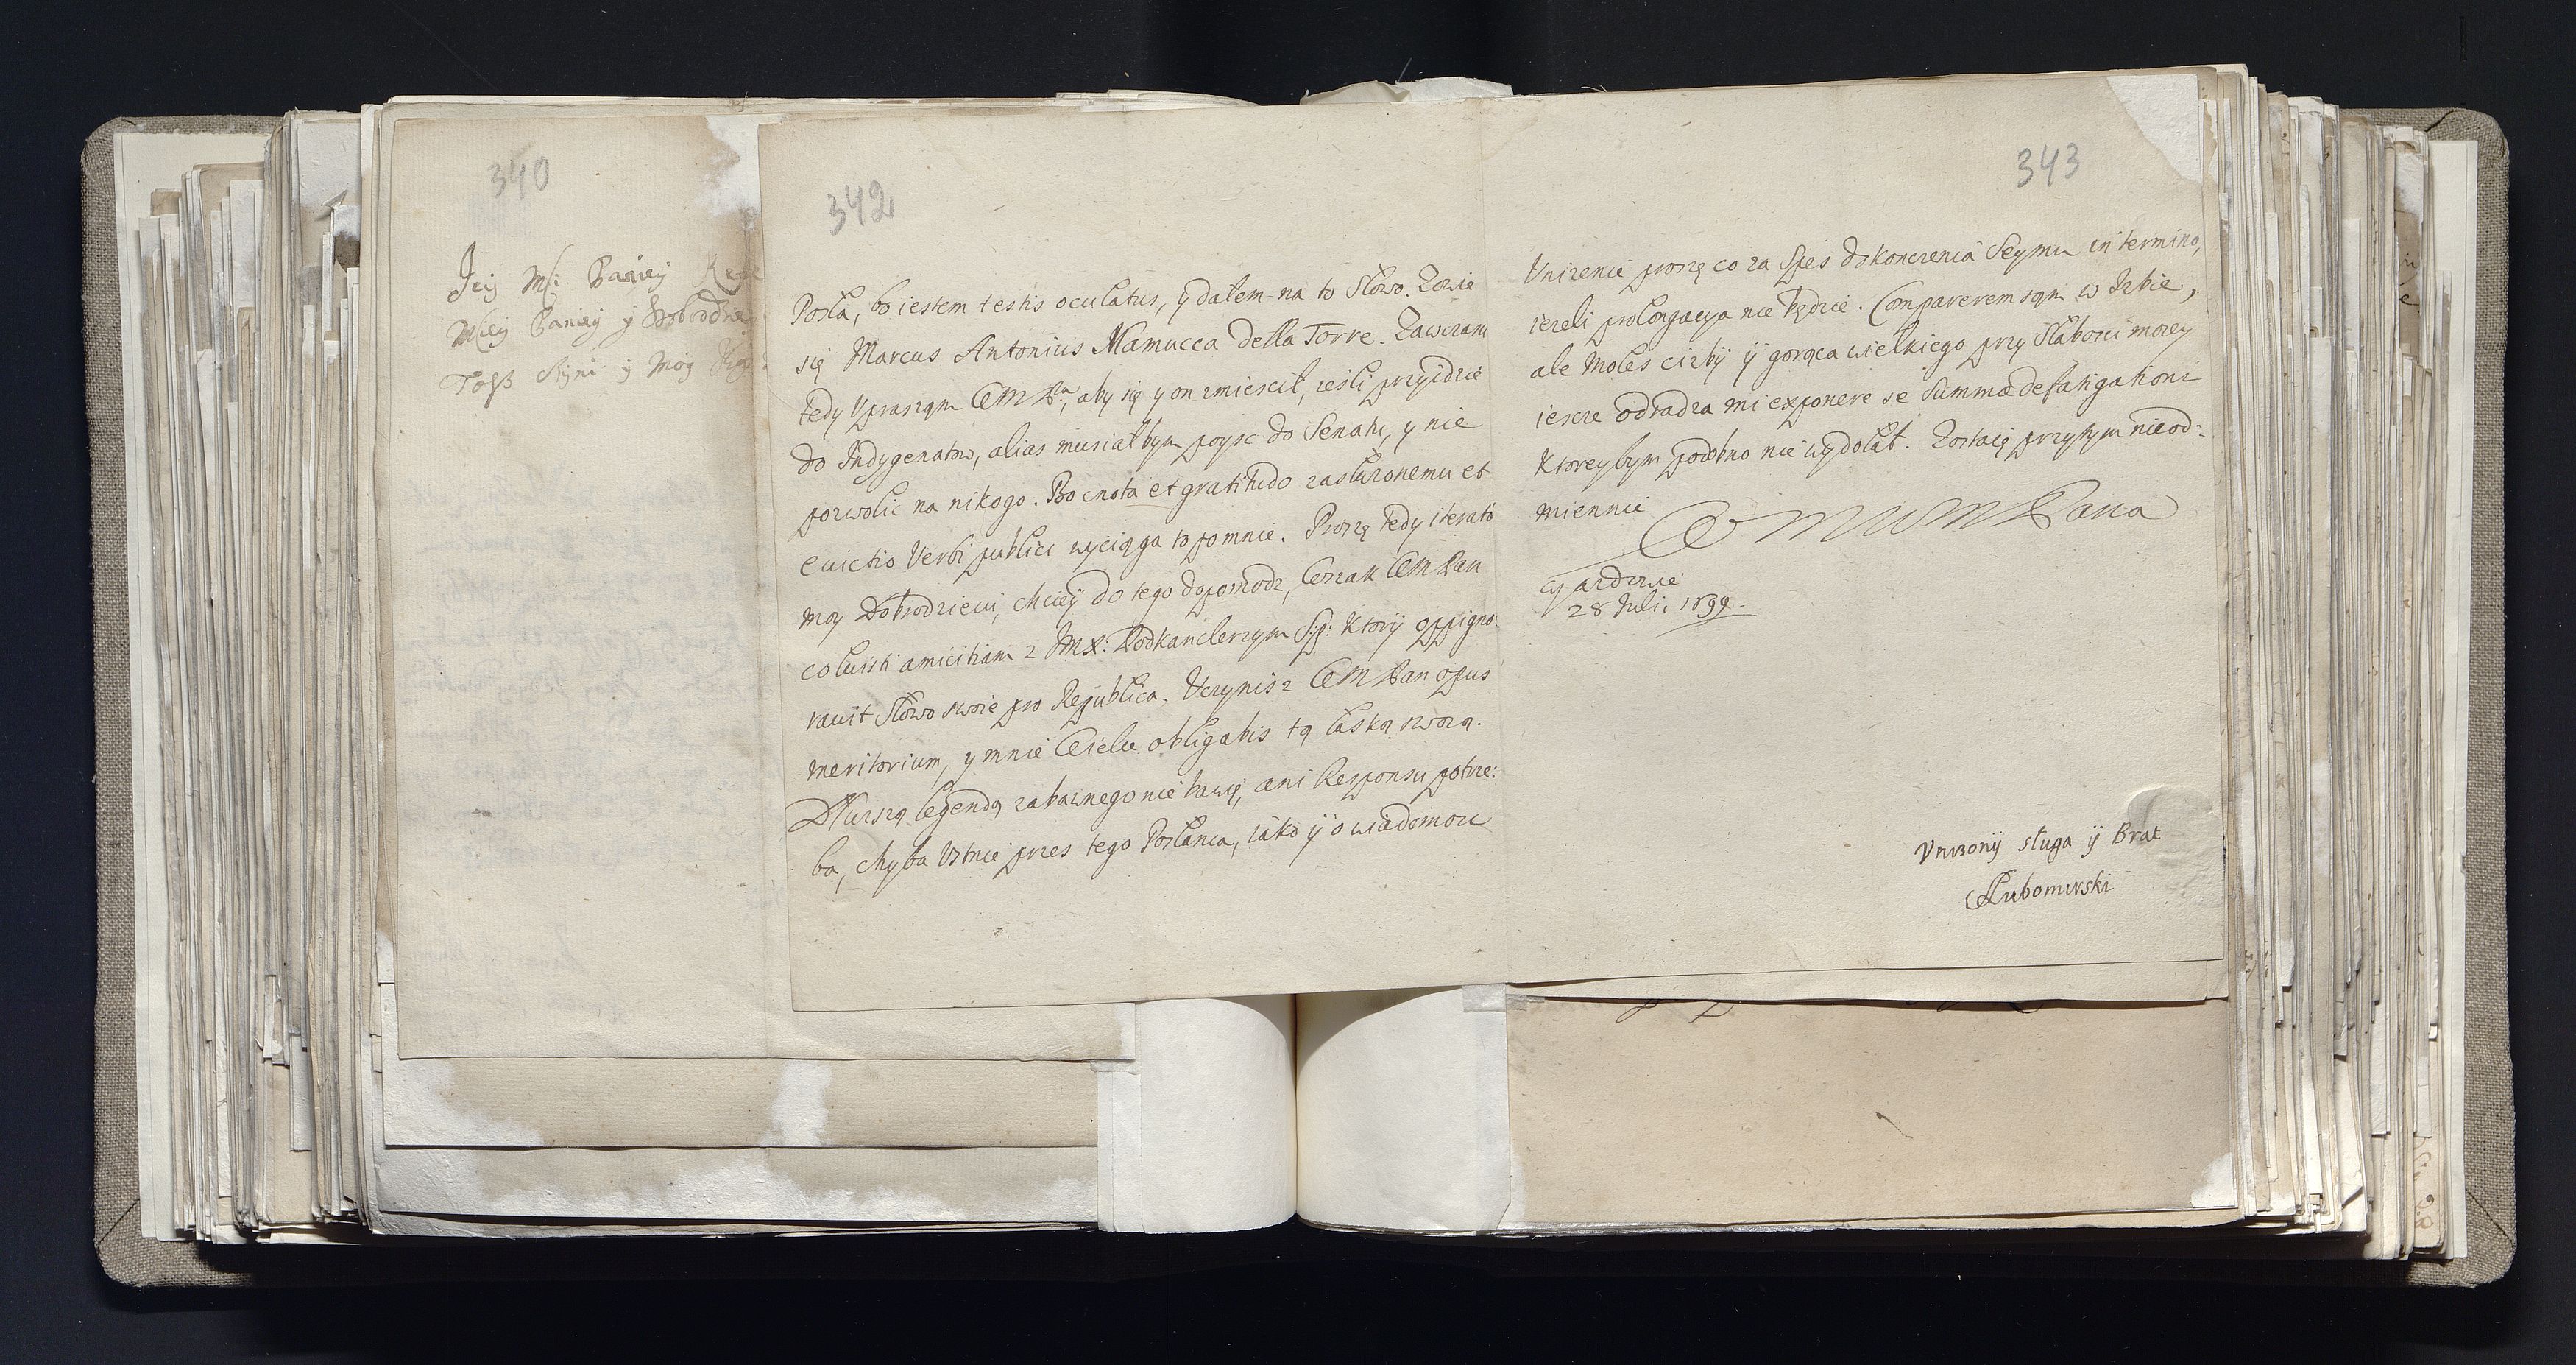 340
Jeij Mći Paniey
Mćiey Paniey y Dobrodzie
y Moy
342
Posła, bo iestem testis oculatus, y dałem na to słowo. Zowie
się Marcus Antonius Mamucca della Torre. Zawczasu
tedy Vpraszam WM Pa, aby się y on zmiescił, iesli przyidzie
do Indygenatow, alias musiałbym poysc do Senatu, y nie
pozwolic na nikogo. Bo cnota et gratitudo zasłuzonemu et
evictio Verbi publici wyciąga to po mnie. Proszę tedy iterato
moy Dobrodzieiu, chciey do tego dopomodz, Wszak WM Pan
coluisti amicitiam z JMX: Podkanclerzym Sp: ktory oppigno:
ravit słowo swoie pro Republica. Vczynisz WM Pan opus
meritorium, y mnie Wielce obligabis tą łaską swoią.
Dłuszsą legendą zabawnego nie bawię, ani Responsu potrze:
ba, chyba Vstnie przes tego Posłanca, iako ÿ o wiadomosc
343
Vnizenie proszę co za Spes dokonczenia Seymu in termino,
iezeli prolongacya nie będzie. Comparerem sam w Izbie,
ale moles cizby ÿ gorąca wielkiego przy słabosci moiey
iescze odradza mi exponere se summæ defatigationi
ktoreybym podobno nie wydołał. Zostaię przytym nieod=
miennie
WMMM Pana
28 Julii 1699.
Vnizonÿ sługa ÿ Brat
Lubomirski